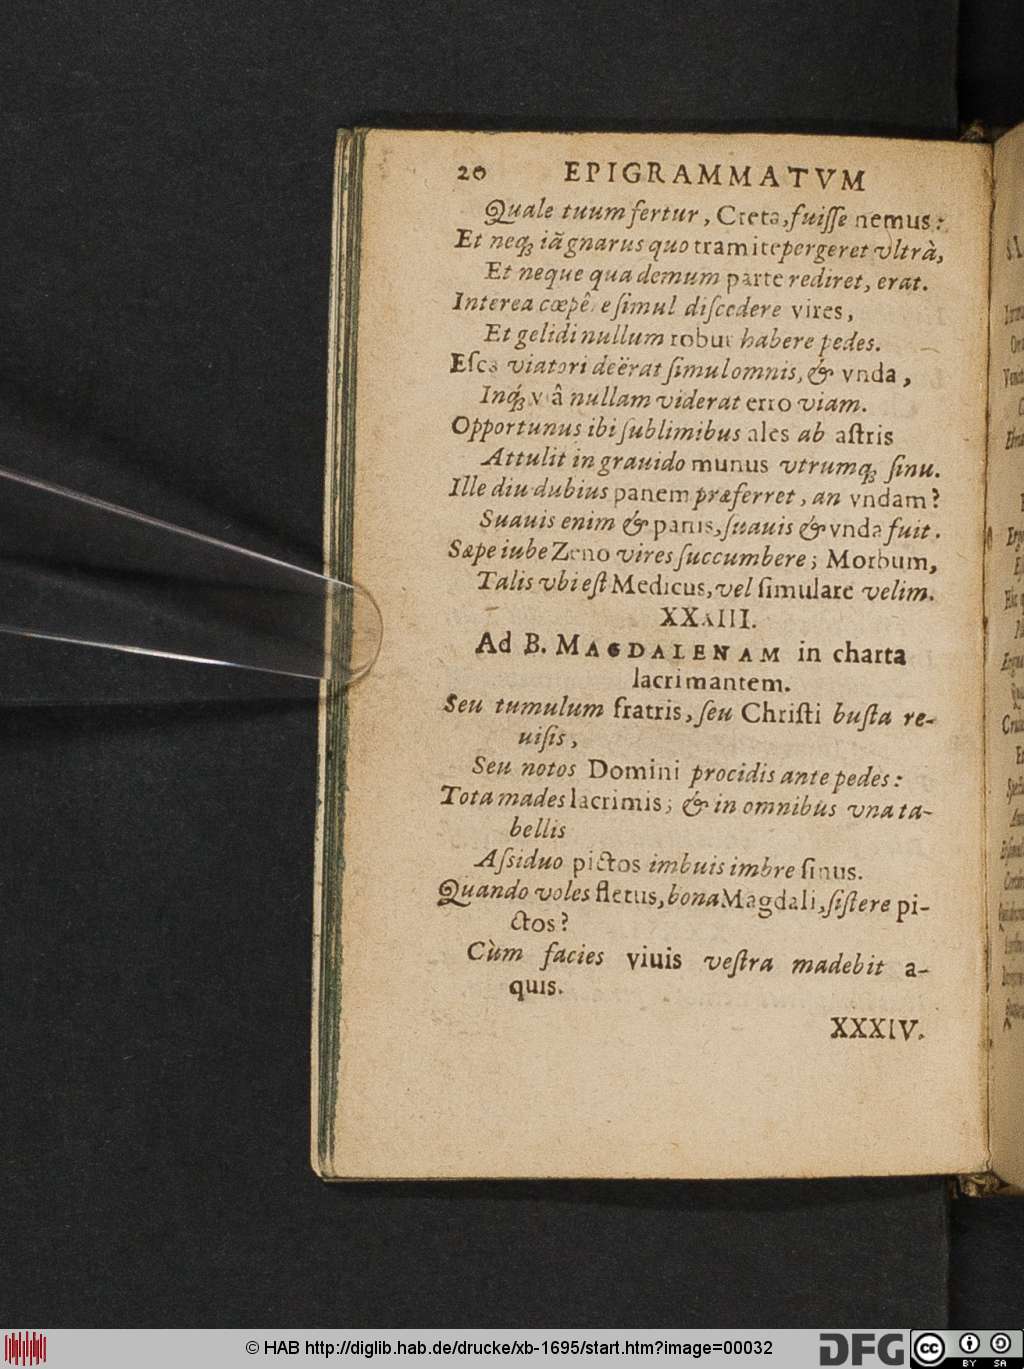 20 EPIGRAMMATVM
Quale tuum fertur, Creta, fuisse nemus:
Et neq; iã gnarus quo tramite pergeret vltrà,
Et neque qua demum parte rediret, erat.
Interea cœpêre simul discedere vires,
Et gelidi nullum robur habere pedes.
Esca viatori deërat simul omnis, & vnda,
Inq́; viâ nullam viderat erro viam.
Opportunus ibi sublimibus ales ab astris
Attulit in grauido munus vtrumq; sinu.
Ille diu dubius panem præferret, an vndam?
Suauis enim & panis, suauis & vnda fuit.
Sæpe iube Zeno vires succumbere; Morbum,
Talis vbi est Medicus, vel simulare velim.
XXXIII.
Ad B. MAGDALENAM in charta
lacrimantem.
Seu tumulum fratris, seu Christi busta re-
uisis,
Seu notos Domini procidis ante pedes:
Tota mades lacrimis; & in omnibus vna ta-
bellis
Assiduo pictos imbuis imbre sinus.
Quando voles fletus, bona Magdali, sistere pi-
ctos?
Cùm facies viuis vestra madebit a-
quis.
XXXIV.
© HAB http://diglib.hab.de/drucke/xb-1695/start.htm?image=00032
DFG
cc
BY SA